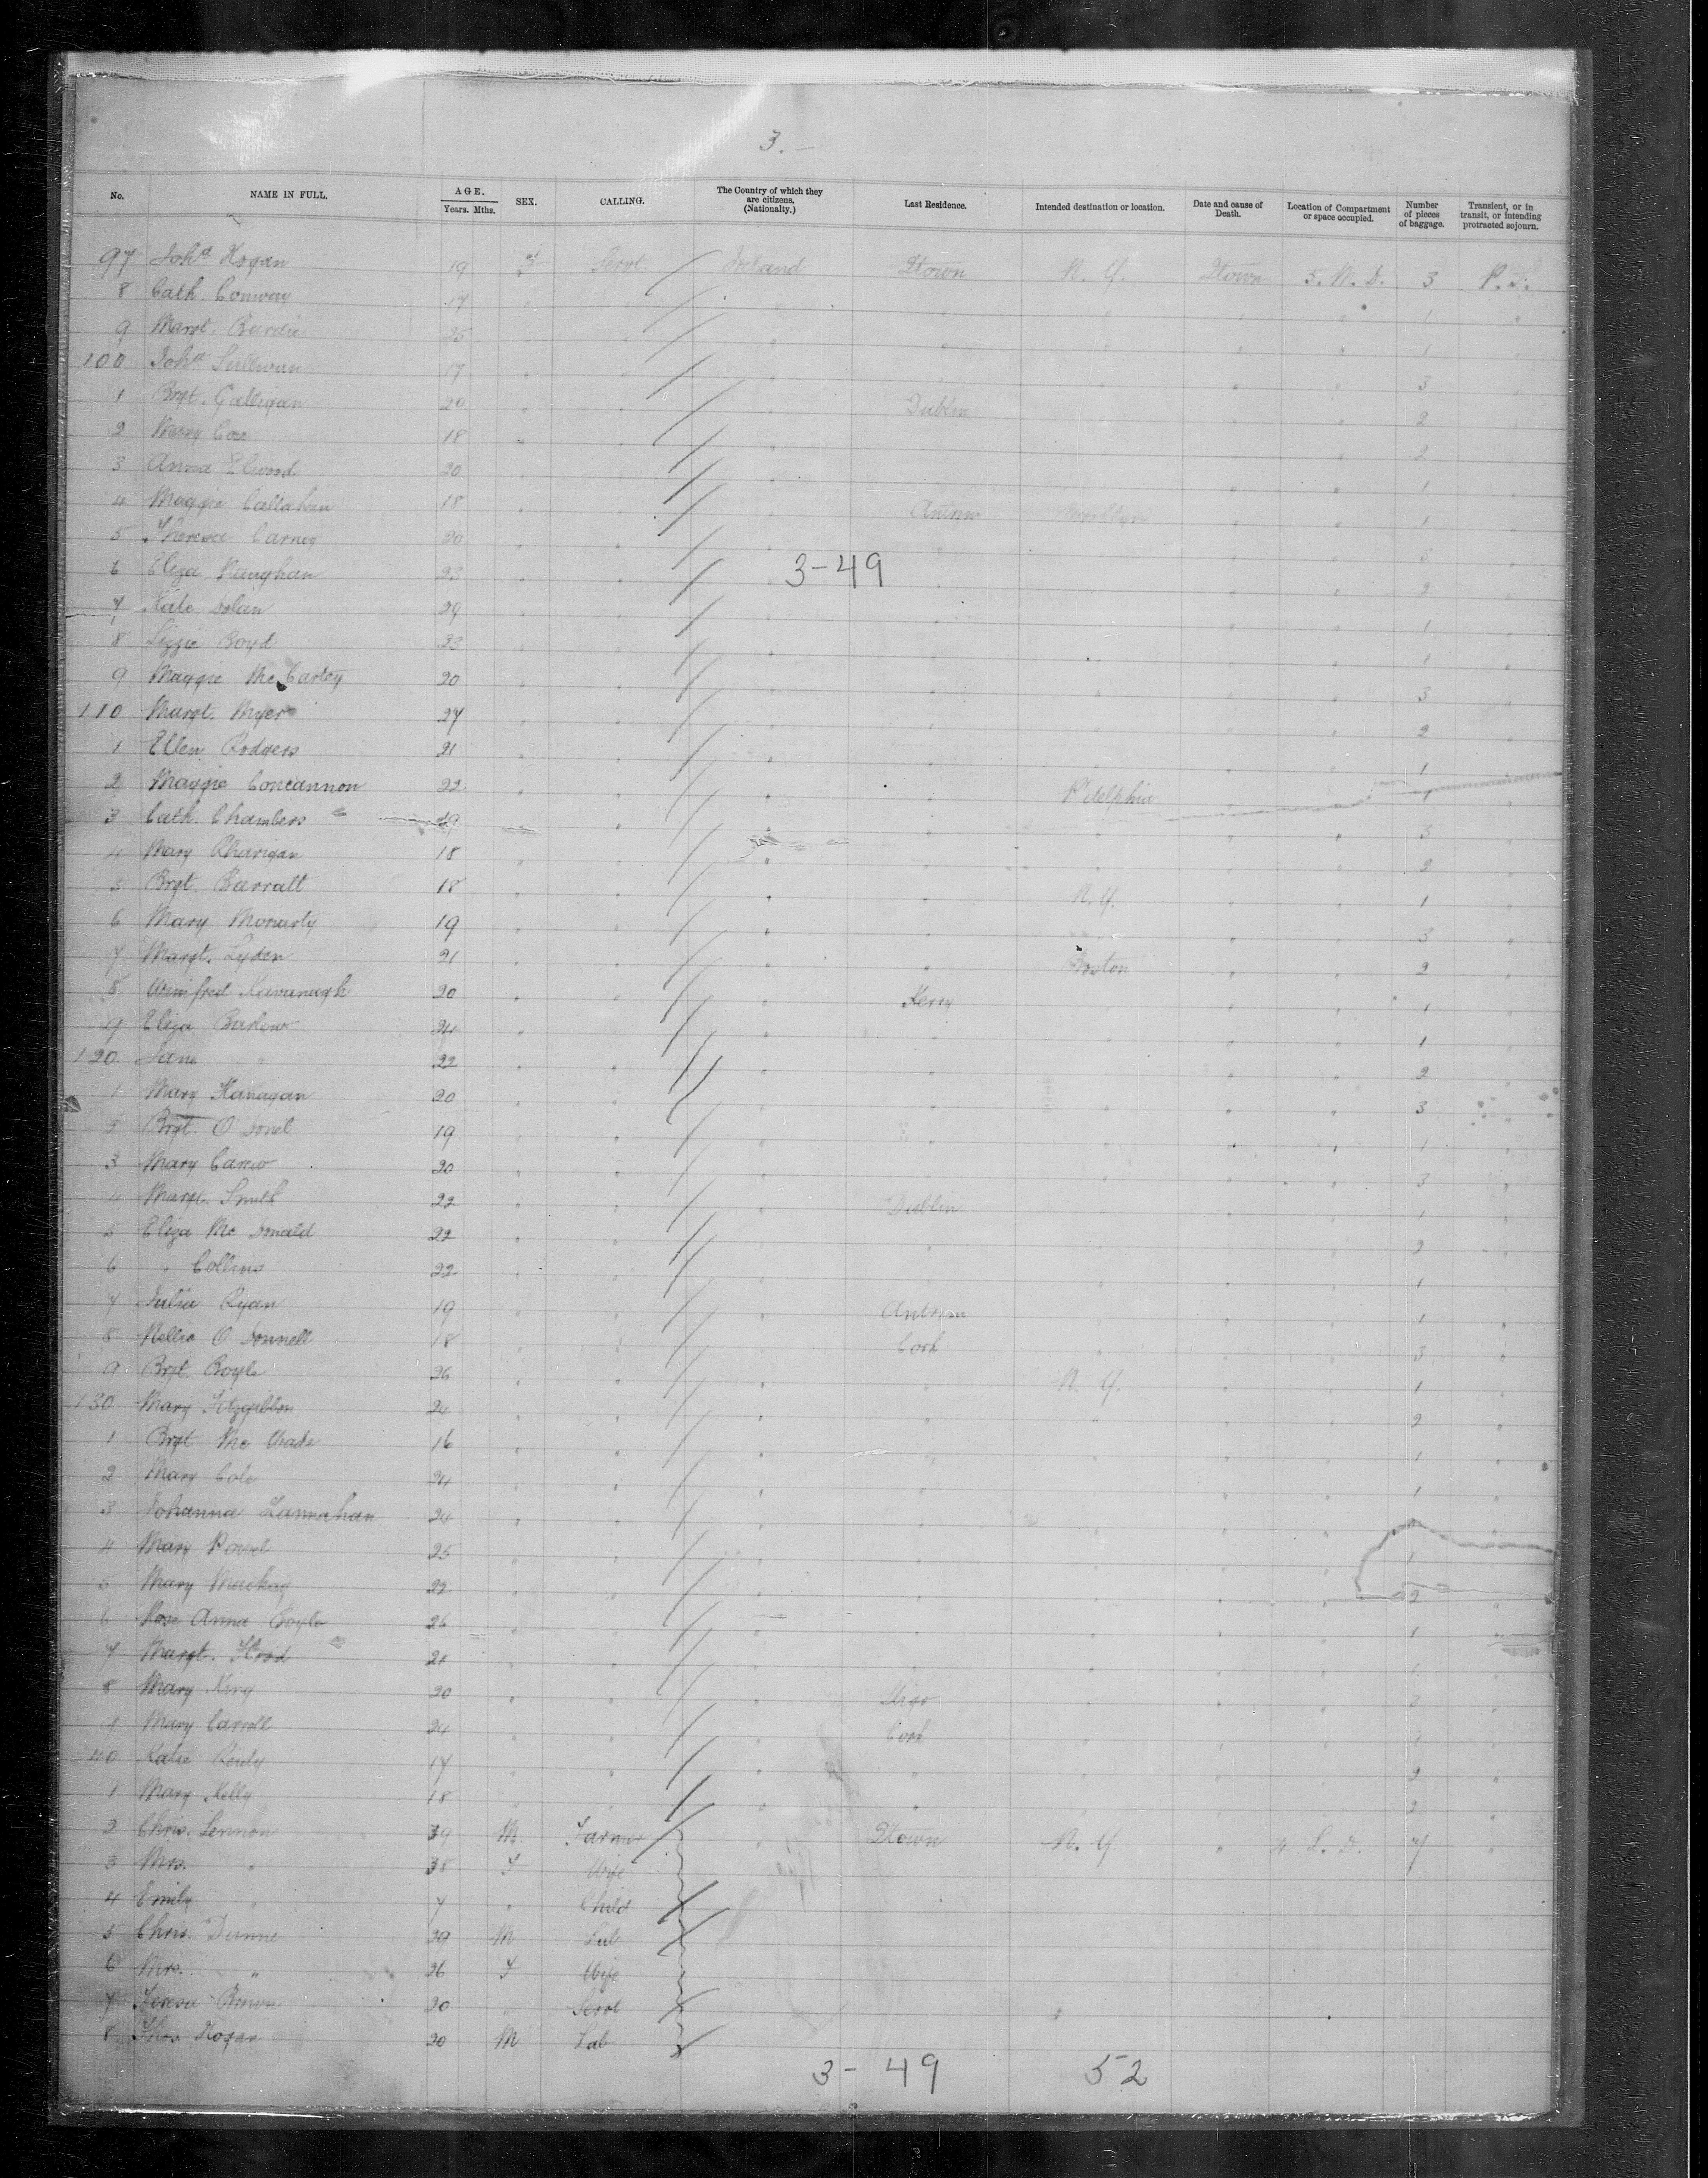 3.
No. NAME IN FULL. AGE. Years. Mths. SEX. CALLING. The Country of which they are citizens. (Nationalty.) Last Residence. Intended destination or location. Date and cause of Death. Location of Compartment or space occupied. Number of pieces of baggage. Transient, or in transit, or intending protracted sojourn.
97 Joha Hogan 19 F Servt. Ireland Qtown N. Y. Qtown 3
8 Cath. Conway 17 " " " " " " " 1 "
9 Margt. 25 " " " " " " " 1 "
100 Joha Sullivan 17 " " " " " " " 3 "
1 Brgt. Galligan 20 " " " Dublin " " " 2 "
2 Mary Cox 18 " " " " " " " 2 "
3 Anna Elwood 20 " " " " " " " 1 "
4 Maggie Callahan 18 " " " Antrim Brooklyn " " 1 "
5 Therese Carney 20 " " " " " " " 3 "
6 Eliza Vaughan 23 " " " " " " " 2 "
3-49
7 Kate Dolan 29 " " " " " " " 1 "
8 Lizzie Boyd 23 " " " " " " " 1 "
9 Maggie McCartey 20 " " " " " " " 3 "
110 Margt. Myers 27 " " " " " " " 2 "
1 Ellen Rodgers 21 " " " " " " " 1 "
2 Maggie Concannon 22 " " " " P'delphia " " 1 "
3 Cath. Chambers 19 " " " " " " " 3 "
4 Mary 18 " " " " " " " 2 "
5 Brgt. Barratt 18 " " " " N.Y. " " 1 "
6 Mary Moriarty 19 " " " " " " " 3 "
7 Margt. Lyden 21 " " " " Boston " " 2 "
8 Winifred Kavanagh 20 " " " Kerry " " " 1 "
9 Eliza Barlow 24 " " " " " " " 1 "
120 Jane " 22 " " " " " " " 2 "
1 Mary Hanagan 20 " " " " " " " 3 "
2 Brgt. O Donel 19 " " " " " " " 1 "
3 Mary Carew 20 " " " " " " " 3 "
4 Margt. Smith 22 " " " Dublin " " " 1 "
5 Eliza Mc Donald 22 " " " " " " " 2 "
6 " Collins 22 " " " " " " " 1 "
7 Julia Ryan 19 " " " Antrim " " " 1 "
8 Nellie O Donnell 18 " " " Cork " " " 3 "
9 Brgt. Boyle 26 " " " " N. Y. " " 1 "
130 Mary Fitzgibbon 24 " " " " " " " 2 "
1 Brgt Mc 16 " " " " " " " 1 "
2 Mary Cole 24 " " " " " " " 1 "
3 Johanna Lannahan 24 " " " " " " "
4 Mary Powel 25 " " " " " " " 1 "
5 Mary Mackay 22 " " " " " " " 2 "
6 Rose Anna 26 " " " " " " " 1 "
7 Margt. Hood 21 " " " " " " "
8 Mary King 20 " " " Sligo " " " 3 "
9 Mary Carroll 24 " " " Cork " " "
40 Katie Reidy 17 " " " " " " " 2 "
1 Mary Kelly 18 " " " " " " " 2 "
2 Chris. Lennon 39 M Farmer " Qtown N. Y. " 7 "
3 Mrs. " 38 F Wife
4 Emily " 7 " Child
5 Chris. Dunne 29 M Lab
6 Mrs. " 26 F Wife
7 Teresa Brown 20 " Servt
8 Thos Hogan 20 M Lab
3- 49 52